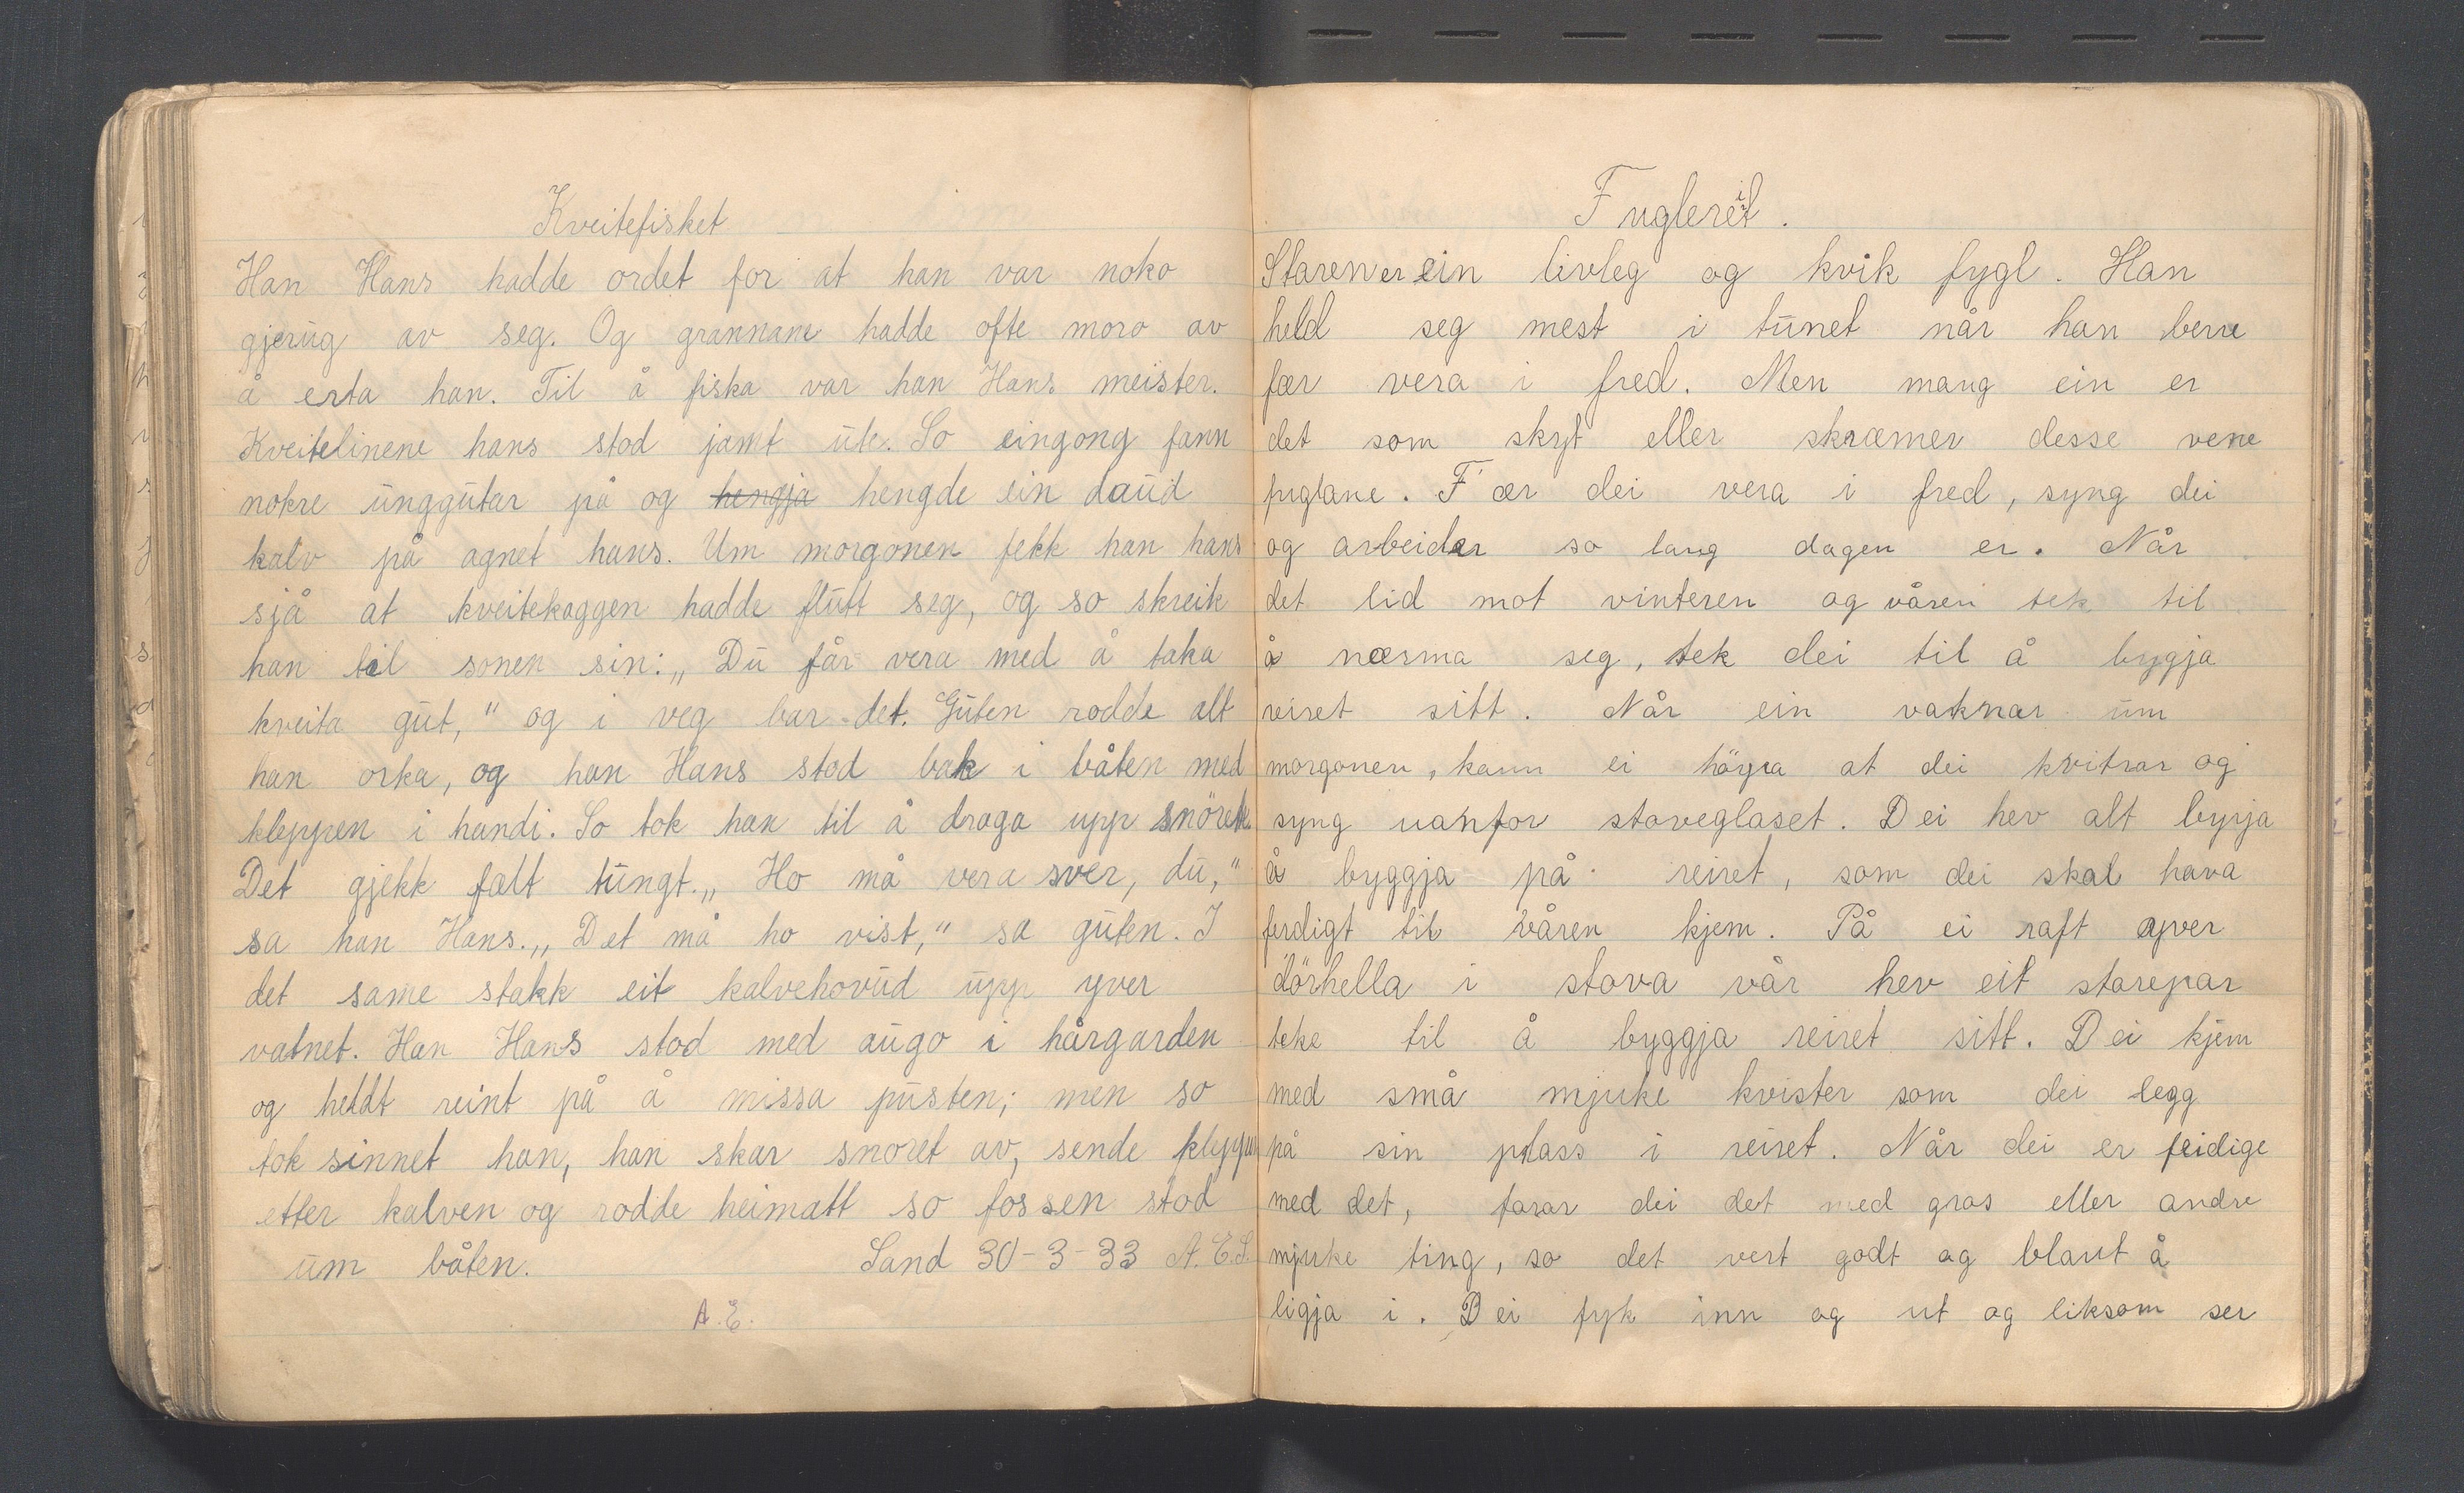 Kveitefisket
Han Hans hadde ordet for at han var noko
gjerug av seg. Og grannane hadde ofte moro av
å erta han. Til å fiska var han Hans meister.
Kveitelinene hans stod jamt ute. So eingong fann
nokre unggutar på og hengja hengde ein daud
kalv på agnet hans. Um morgonen fekk han hans
sjå at kveitekaggen hadde flutt seg, og so skreik
han til sonen sin: „Du får vera med å taka
kveita gut,“ og i veg bar det. Guten rodde alt
han orka, og han Hans stod bak i båten med
kleppen i handi. So tok han til å draga upp snöret.
Det gjekk fælt tungt. „Ho må vera svær, du,“
sa han Hans. „Det må ho vist,“ sa guten. I
det same stakk eit kalvehovud upp yver
vatnet. Han Hans stod med augo i hårgarden
og heldt reint på å missa pusten; men so
tok sinnet han, han skar snoret av, sende kleppen
etter kalven og rodde heimatt so fossen stod
um båten. Sand 30-3-33 A.E.S.
A.E.
Fuglereit.
Staren er ein livleg og kvik fygl. Han
held seg mest i tunet når han berre
fær vera i fred. Men mang ein er
det som skyt eller skræmer desse vene
fuglane. Fær dei vera i fred, syng dei
og arbeider so lang dagen er. Når
det lid mot vinteren og våren tek til
å nærma seg, tek dei til å bygja
reiret sitt. Når ein vaknar um
morgonen, kann ei höyra at dei kvitrar og
syng uanfor stoveglaset. Dei hev alt byrja
å byggja på reiret, som dei skal hava
ferdigt til våren kjem. På ei raft yver
dörhella i stova vår hev eit starepar
teke til å byggja reiret sitt. Dei kjem
med små mjuke kvister som dei legg
på sin plass i reiret. Når dei er feidige
med det, forar dei det med gras eller andre
mjuke ting, so det vert godt og blaut å
ligja i. Dei fyk inn og ut og liksom ser